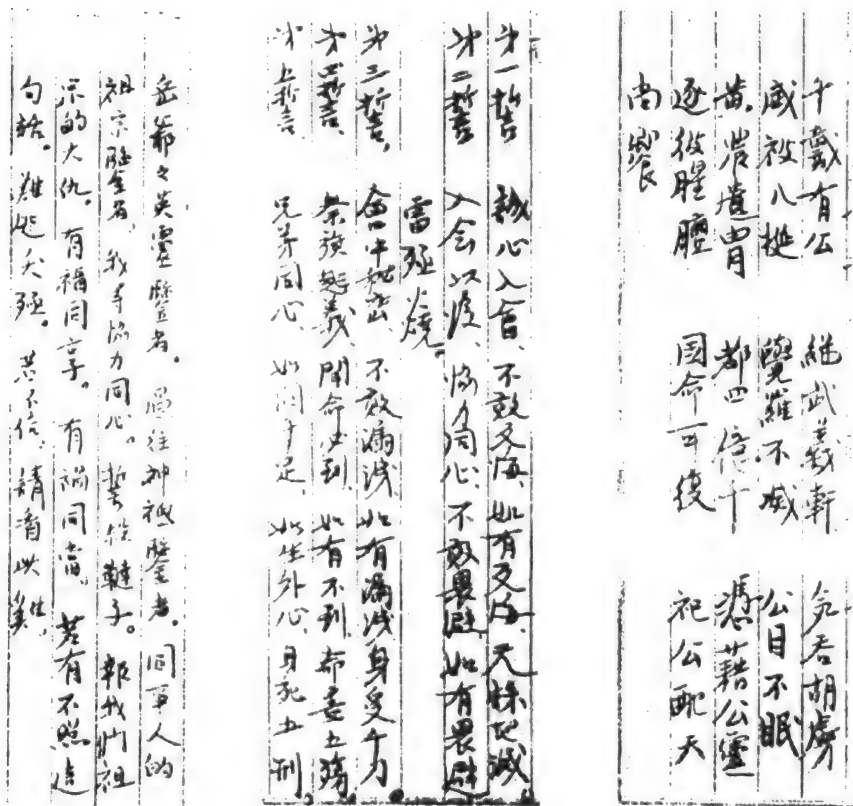 千載有公 繼武羲軒 氣吞胡虜
威被八埏 覺羅不滅 公目不眠
黄農遺胄 都四倍千 憑藉公靈
逐彼腥膻 國命可復 祀公配天
尚饗
第一誓、誠心入會、不敢反悔、如有反悔、天誅地滅
第二誓 入会以後、協力同心、不敢畏避、如有畏避
雷殛火燒。
第三誓、會中秘密、不敢漏洩、如有漏洩身受千刀
第四誓、祭旗起義、聞命必到、如有不到、命盡五殤
第五誓、兄弟同心、如同手足、如生外心、身死五刑。
岳爺々英靈鑒者。過往神祗鑒者。同事人的
祖宗鑒者、我等協力同心。誓殺韃子。報我們祖
宗的大仇。有福同享。有禍同當、若有不照這
句話。難逃天殛。若不信、請看此雞、